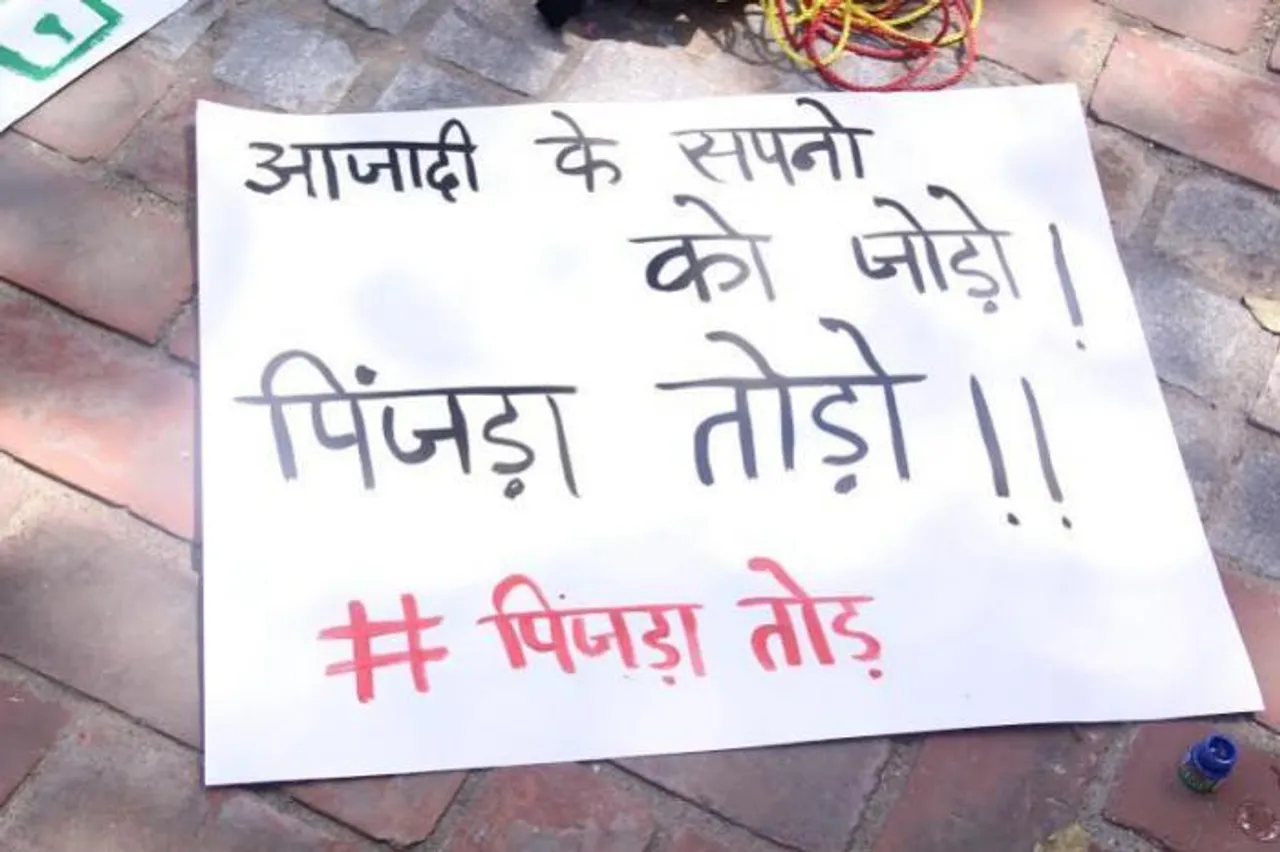 आजादी के सपनो
को जोड़ो !
पिंजड़ा तोड़ो !!
# पिंजड़ा तोड़